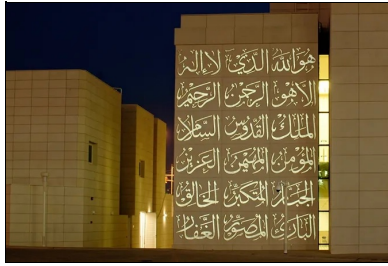 هو الله الذي لا إله
إلا هو الرحمن الرحيم
الملك القدوس السلام
المؤمن المهيمن العزيز
الجبار المتكبر الخالق
البارئ المصور الغفار